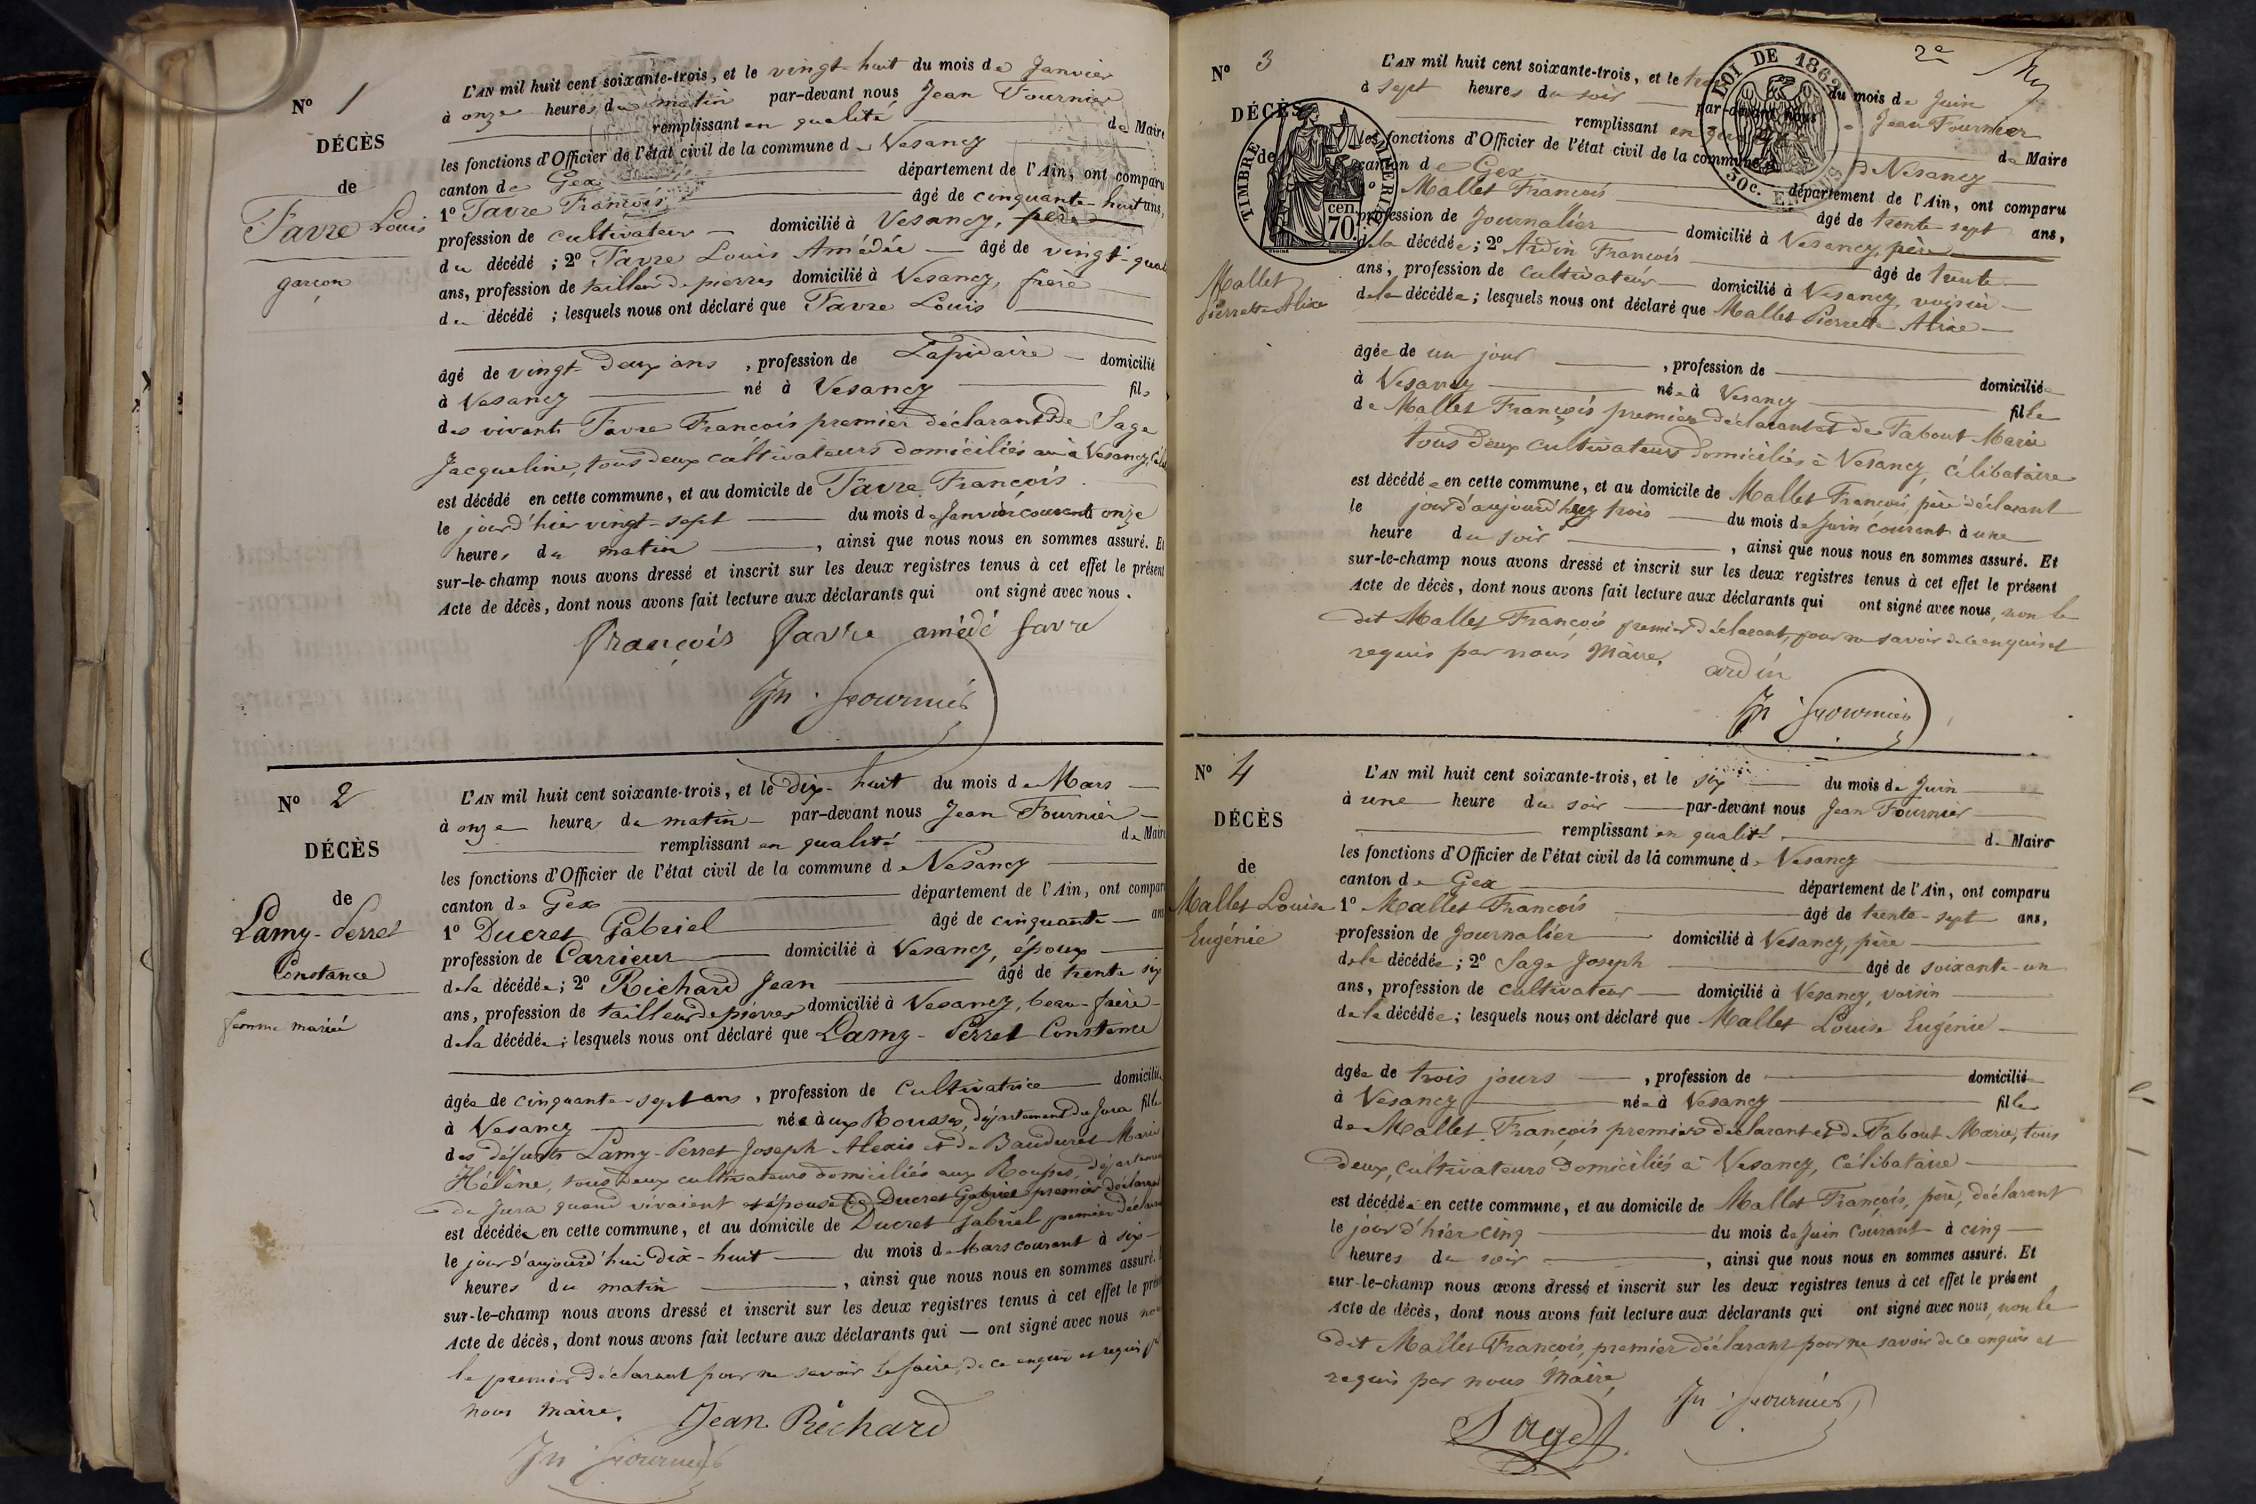 Nº 1
DÉCÈS
de
Favre Louis
garçon
L'AN mil huit cent soixante-trois, et le vingt-huit du mois de Janvier
à onze heures du matin par-devant nous Jean Fournier
remplissant en qualité de Maire
les fonctions d'Officier de l'état civil de la commune de Vesancy
canton de Gex département de l'Ain, ont comparu
1º Favre François âgé de cinquante-huit ans,
profession de cultivateur domicilié à Vesancy, père
du décédé ; 2º Favre Louis Amédée âgé de vingt-quat
ans, profession de tailleur de pierres domicilié à Vesancy, frère
du décédé ; lesquels nous ont déclaré que Favre Louis
âgé de vingt-deux ans, profession de Lapidaire domicilié
à Vesancy né à Vesancy fils
des vivants Favre François premier déclarant et de Sage
Jacqueline, tous deux cultivateurs domiciliés à Vesancy,
est décédé en cette commune, et au domicile de Favre François
le jour d'hier vingt-sept du mois de Janvier courant à onze
heures du matin, ainsi que nous nous en sommes assuré. Et
sur-le-champ nous avons dressé et inscrit sur les deux registres tenus à cet effet le présent
Acte de décès, dont nous avons fait lecture aux déclarants qui ont signé avec nous.
françois favre amédé favre
Jn Fournier
Nº 2
DÉCÈS
de
Lamy-Perret
Constance
femme mariée
L'AN mil huit cent soixante-trois, et le dix-huit du mois de Mars
à onze heures du matin par-devant nous Jean Fournier
remplissant en qualité de Maire
les fonctions d'Officier de l'état civil de la commune de Vesancy
canton de Gex département de l'Ain, ont comparu
1º Ducret Gabriel âgé de cinquante ans
profession de Carrieur domicilié à Vesancy, époux
de la décédée ; 2º Richard Jean âgé de trente six
ans, profession de tailleur de pierres domicilié à Vesancy, beau-frère
de la décédée ; lesquels nous ont déclaré que Lamy-Perret Constance
âgée de cinquante-sept ans, profession de Cultivatrice domiciliée
à Vesancy née à aux Rousses, département du Jura fille
des défunts Lamy-Perret Joseph Alexis et de Bauduret Marie
Hélène, tous deux cultivateurs domiciliés aux Rousses, département
du Jura quand vivaient et épouse de Ducret Gabriel premier déclarant
est décédée en cette commune, et au domicile de Ducret Gabriel premier déclarant
le jour d'aujourd'hui dix-huit du mois de Mars courant à six
heures du matin, ainsi que nous nous en sommes assuré.
sur-le-champ nous avons dressé et inscrit sur les deux registres tenus à cet effet le présent
Acte de décès, dont nous avons fait lecture aux déclarants qui ont signé avec nous non
le premier déclarant pour ne savoir le faire, de ce enquis et requis par
nous Maire.
Jean Richard
Jn Fournier
2e
Nº 3
DÉCÈS
de
Mallet
Pierrette Alixe
TIMBRE IMPERIAL
cen. 70.
LOI DE 1862
50c. EN SUS
L'AN mil huit cent soixante-trois, et le trois du mois de Juin
à sept heures du soir par-devant nous Jean Fournier
remplissant en qualité de Maire
les fonctions d'Officier de l'état civil de la commune de Vesancy
canton de Gex département de l'Ain, ont comparu
1º Mallet François âgé de trente sept ans,
profession de Journalier domicilié à Vesancy, père
de la décédée ; 2º Ardin François âgé de trente
ans, profession de Cultivateur domicilié à Vesancy, voisin
de la décédée ; lesquels nous ont déclaré que Mallet Pierrette Alixe
âgée de un jour, profession de domiciliée
à Vesancy née à Vesancy fille
de Mallet François premier déclarant et de Fabout Marie
tous deux cultivateurs domiciliés à Vesancy, Célibataire
est décédée en cette commune, et au domicile de Mallet François, père déclarant
le jour d'aujourd'huy trois du mois de Juin courant à une
heure du soir, ainsi que nous nous en sommes assuré. Et
sur-le-champ nous avons dressé et inscrit sur les deux registres tenus à cet effet le présent
Acte de décès, dont nous avons fait lecture aux déclarants qui ont signé avec nous, non le
dit Mallet François premier déclarant, pour ne savoir de ce enquis et
requis par nous Maire.
ardin
Jn Fournier
Nº 4
DÉCÈS
de
Mallet Louise
Eugénie
L'AN mil huit cent soixante-trois, et le six du mois de Juin
à une heure du soir par-devant nous Jean Fournier
remplissant en qualité de Maire
les fonctions d'Officier de l'état civil de la commune de Vesancy
canton de Gex département de l'Ain, ont comparu
1º Mallet François âgé de trente-sept ans,
profession de Journalier domicilié à Vesancy, père
de la décédée ; 2º Sage Joseph âgé de soixante-un
ans, profession de cultivateur domicilié à Vesancy, voisin
de la décédée ; lesquels nous ont déclaré que Mallet Louise Eugénie
âgée de trois jours, profession de domiciliée
à Vesancy née à Vesancy fille
de Mallet François premier déclarant et de Fabout Marie, tous
deux, cultivateurs domiciliés à Vesancy, Célibataire
est décédée en cette commune, et au domicile de Mallet François, père, déclarant
le jour d'hier cinq du mois de Juin courant à cinq
heures du soir, ainsi que nous nous en sommes assuré. Et
sur-le-champ nous avons dressé et inscrit sur les deux registres tenus à cet effet le présent
Acte de décès, dont nous avons fait lecture aux déclarants qui ont signé avec nous, non le
dit Mallet François, premier déclarant pour ne savoir de ce enquis et
requis par nous Maire,
Jn Fournier
Sage J.